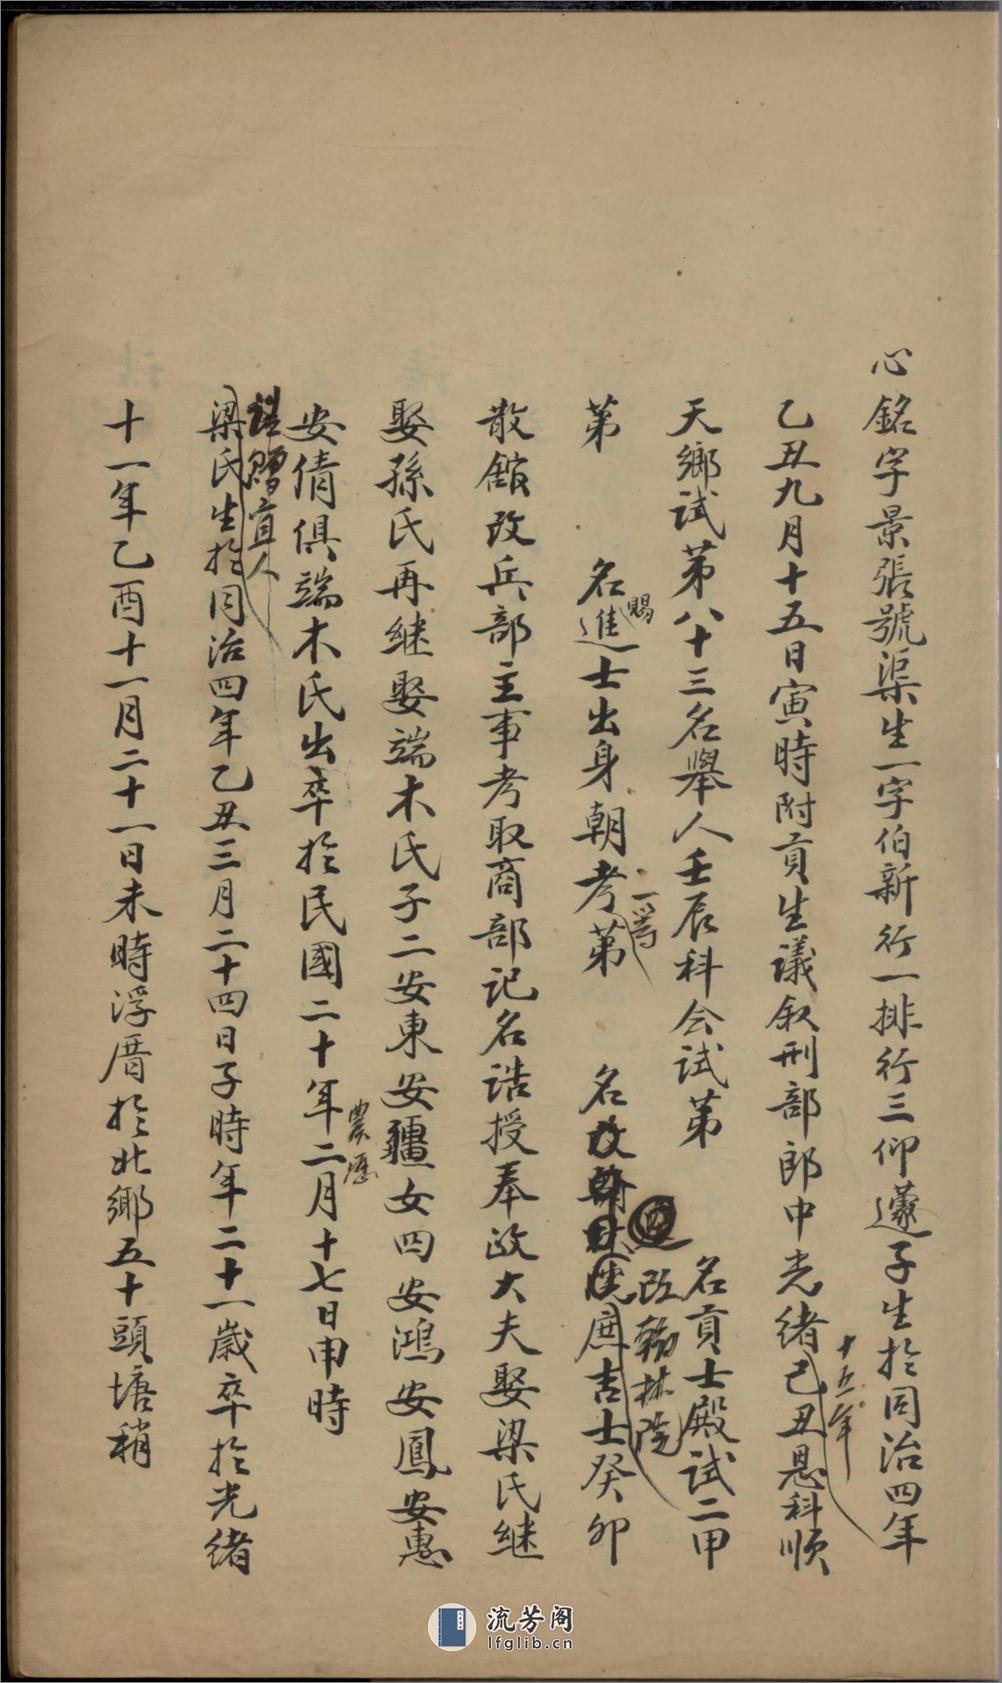 心銘字景張號渠生一字伯新行一排行三仰蘧子生於同治四年
乙丑九月十五日寅時附貢生議叙刑部郎中光緒己丑恩科順
十五年
天鄉試第八十三名舉人壬辰科会試第 名貢士殿試二甲
賜
一等
改翰林院
第 名進士出身朝考第 名改翰林院庶吉士癸卯
散館改兵部主事考取商部記名誥授奉政大夫娶梁氏継
娶孫氏再継娶端木氏子二安東安疆女四安鴻安鳳安惠
農歷
安倩俱端木氏出卒於民國二十年二月十七日申時
贈宜人
梁氏生於同治四年乙丑三月二十四日子時年二十一歲卒於光緒
十一年乙酉十一月二十一日未時浮厝於北鄉五十頭塘稍
流芳阁
lfglib.cn